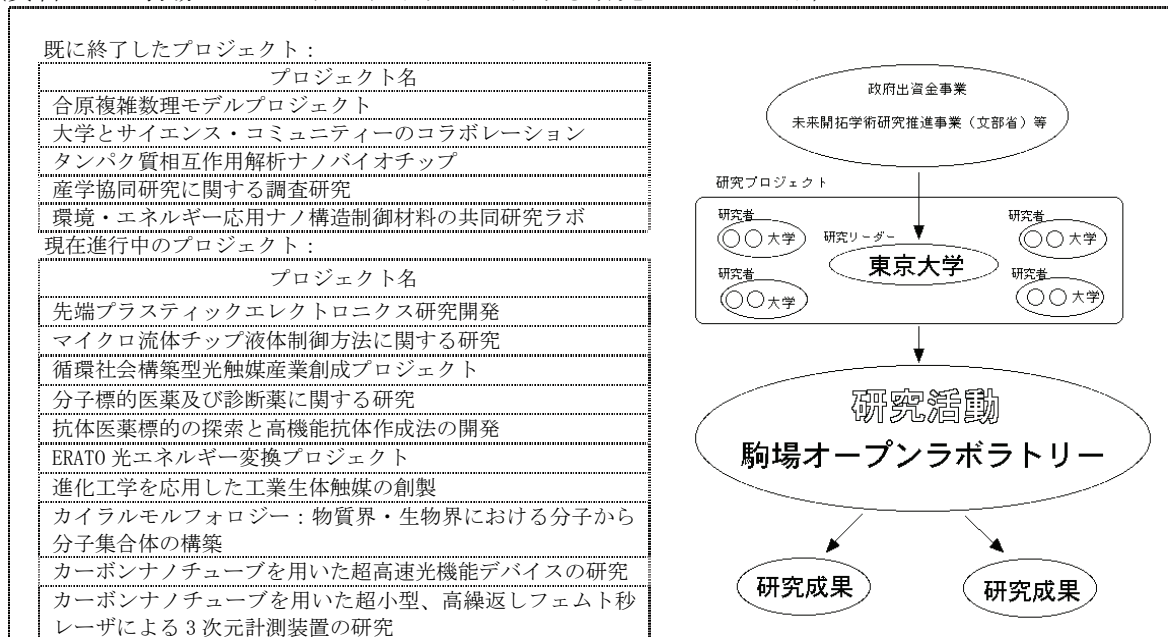 既に終了したプロジェクト：
プロジェクト名
合原複雑数理モデルプロジェクト
大学とサイエンス・コミュニティーのコラボレーション
タンパク質相互作用解析ナノバイオチップ
産学協同研究に関する調査研究
環境・エネルギー応用ナノ構造制御材料の共同研究ラボ
現在進行中のプロジェクト：
プロジェクト名
先端プラスティックエレクトロニクス研究開発
マイクロ流体チップ液体制御方法に関する研究
循環社会構築型光触媒産業創成プロジェクト
分子標的医薬及び診断薬に関する研究
抗体医薬標的の探索と高機能抗体作成法の開発
ERATO 光エネルギー変換プロジェクト
進化工学を応用した工業生体触媒の創製
カイラルモルフォロジー：物質界・生物界における分子から
分子集合体の構築
カーボンナノチューブを用いた超高速光機能デバイスの研究
カーボンナノチューブを用いた超小型、高繰返しフェムト秒
レーザによる３次元計測装置の研究
政府出資金事業
未来開拓学術研究推進事業（文部省）等
研究プロジェクト
研究者
○○大学
研究リーダー
東京大学
研究者
○○大学
研究者
○○大学
研究者
○○大学
研究活動
駒場オープンラボラトリー
研究成果
研究成果